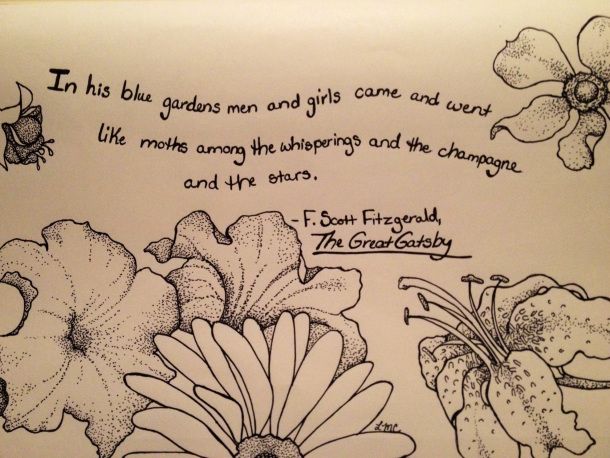 In his blue gardens men and girls came and went
like moths among the whisperings and the champagne
and the stars.
- F. Scott Fitzgerald,
The Great Gatsby
LMC